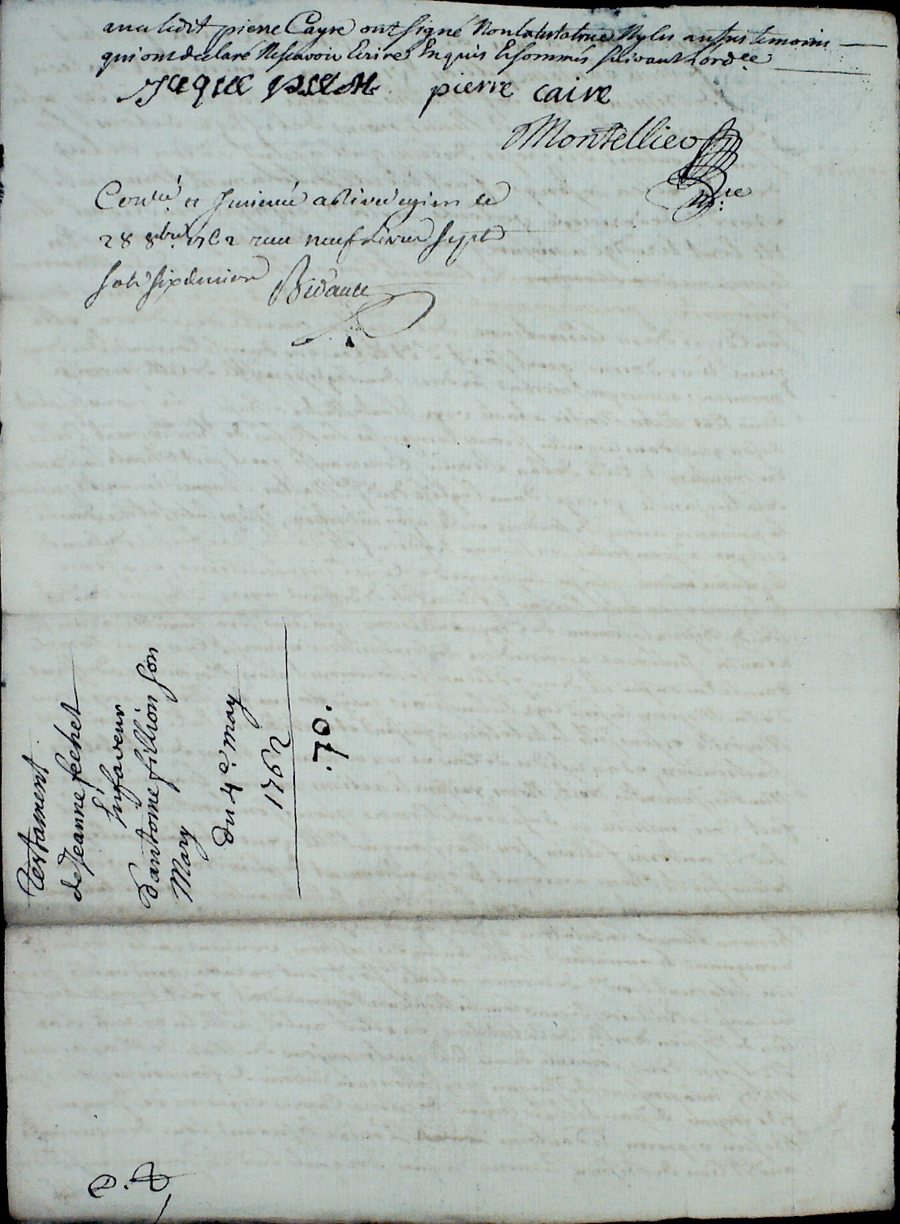 avec ledit pierre Cayre ont signé Non la testatrice Ny les autres temoins
qui ont declaré Ne scavoir Ecrire Enquis Et sommés suivant l'ord.ce
pierre caire
Montellieo
N.re
Con.lé et
28 8bre 1762 neuf livres sept
sols six deniers Bidault
Testament
de Jeanne fechet
En faveur
d'antoine fillion son
Mary
du 4e. may
1762
.70.